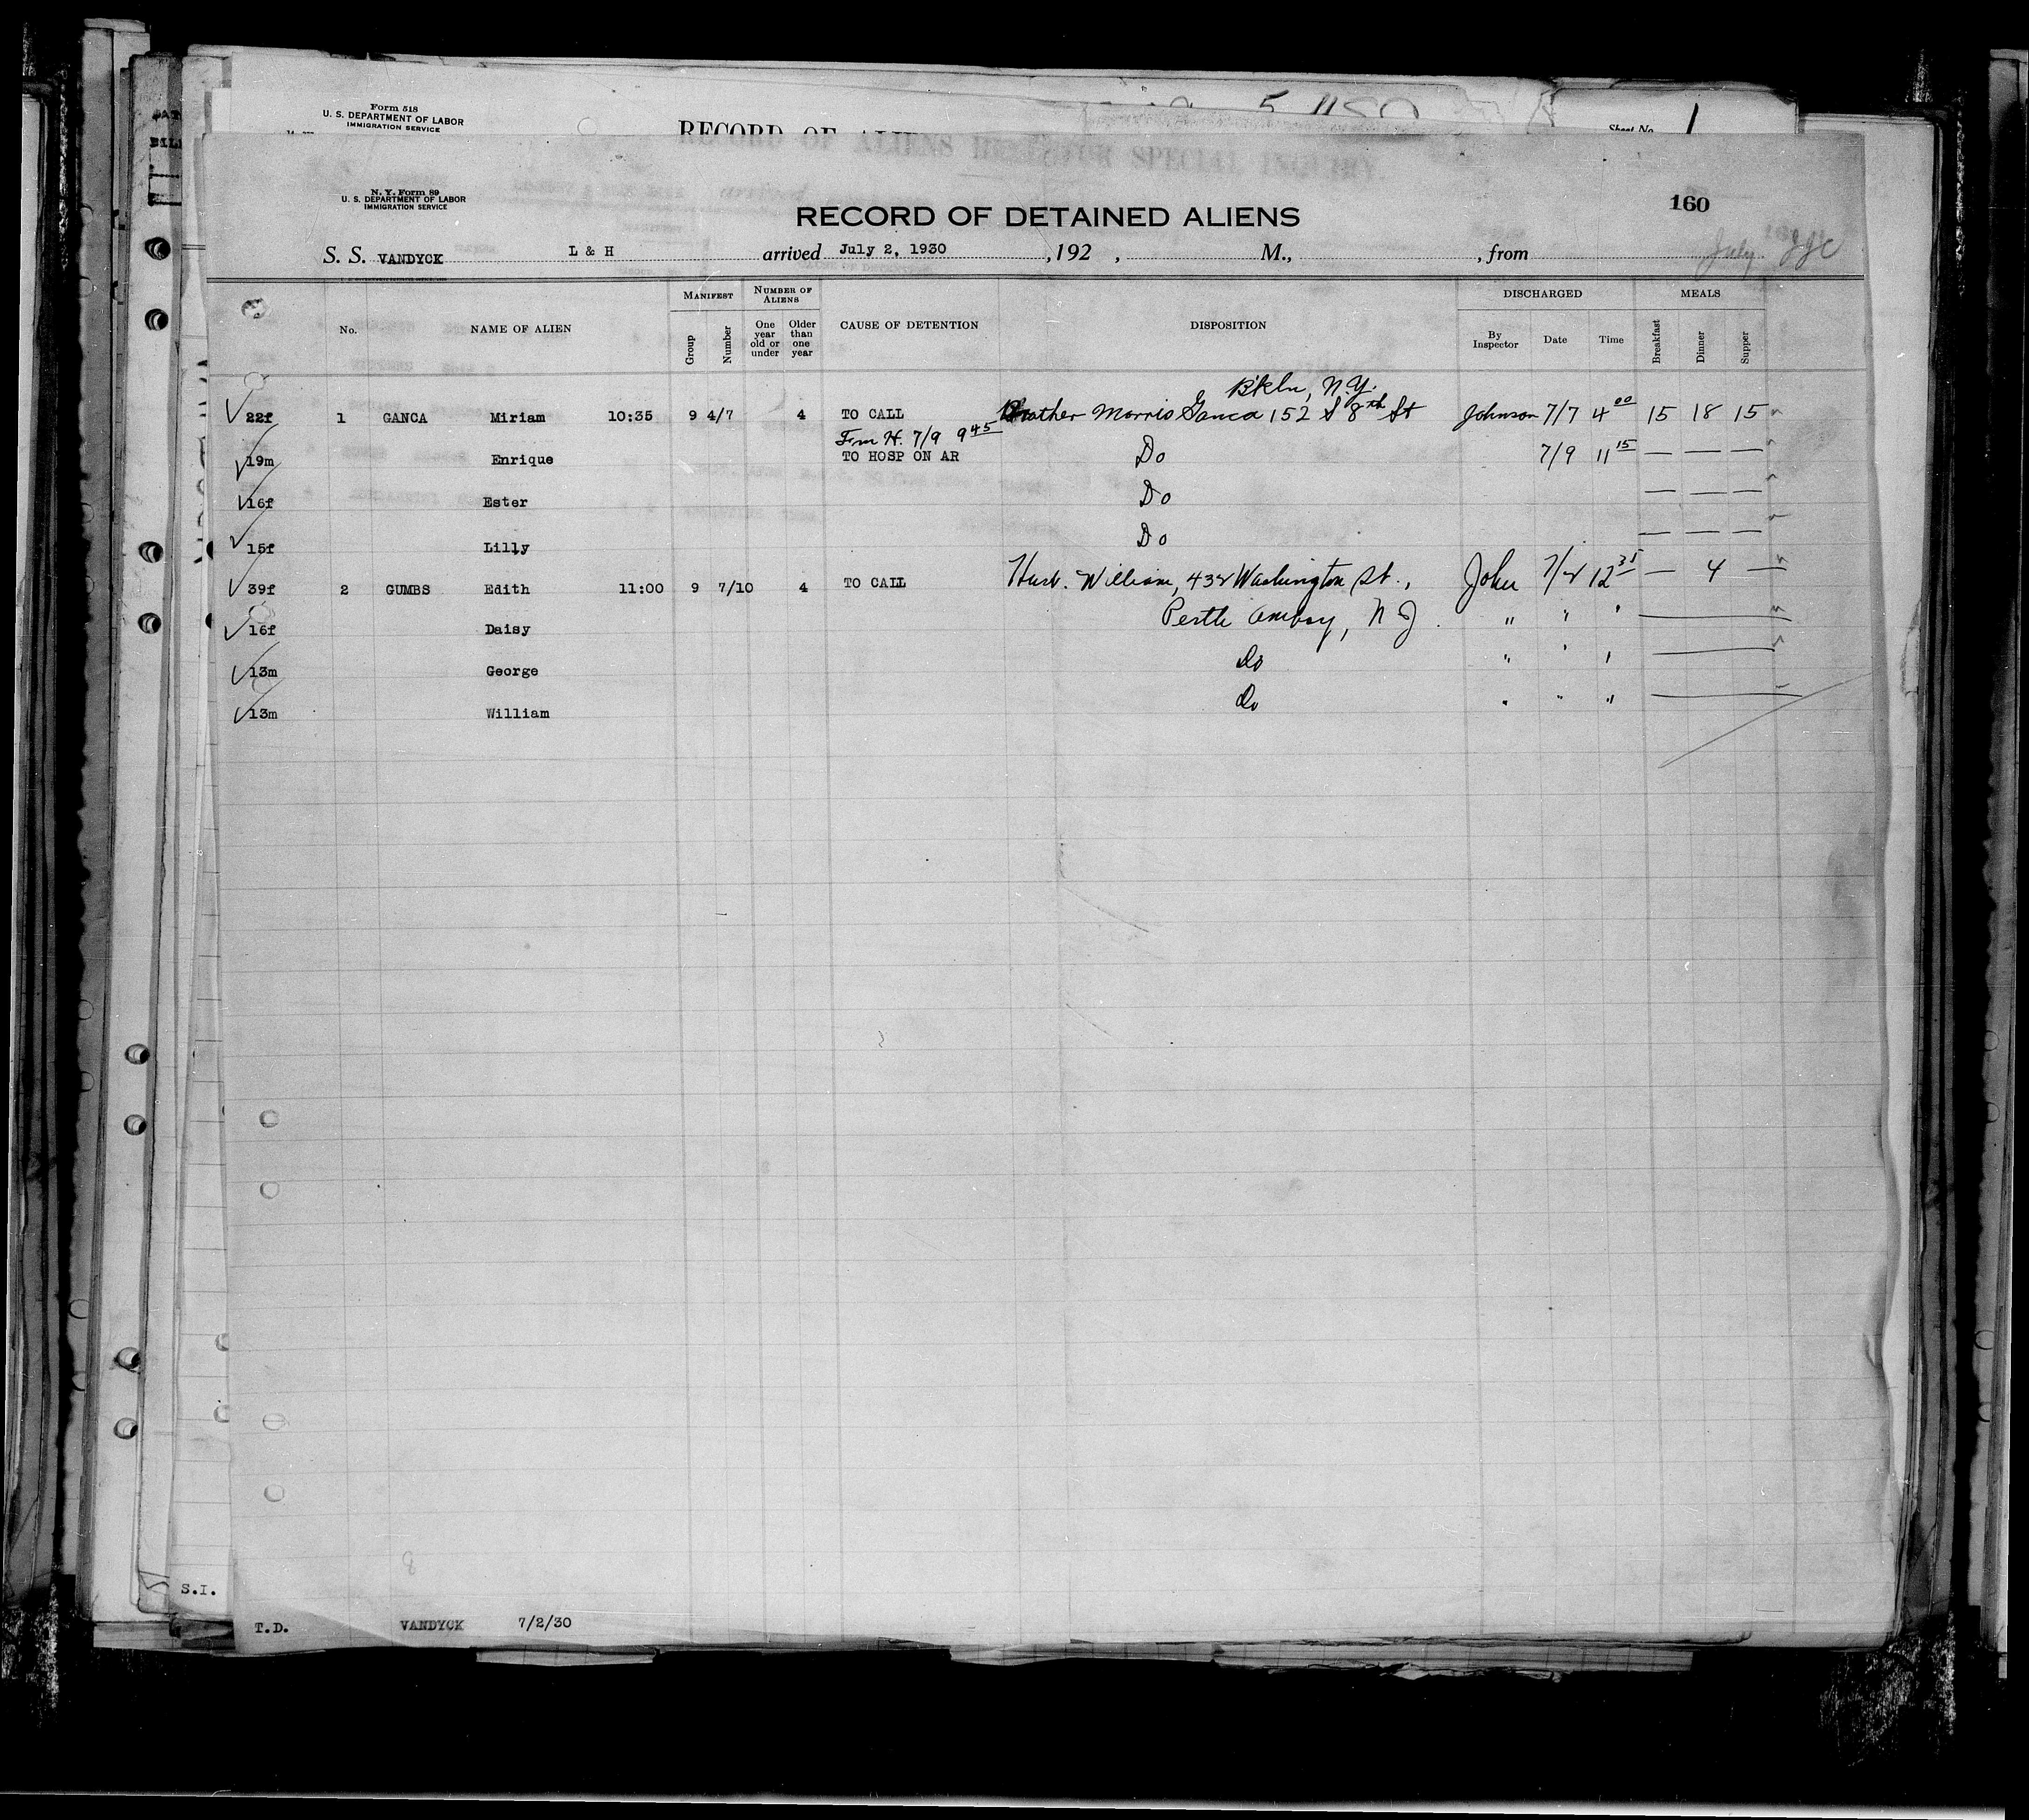 Form 518
U. S. DEPARTMENT OF LABOR
IMMIGRATION SERVICE
RECORD OF ALIENS HELD FOR SPECIAL INQUIRY.
Sheet No. 1
N. Y. Form 89
U. S. DEPARTMENT OF LABOR
IMMIGRATION SERVICE
160
RECORD OF DETAINED ALIENS
S. S. VANDYCK L & H arrived July 2, 1930, 192 , M., , from July
No. NAME OF ALIEN MANIFEST Group Number NUMBER OF ALIENS One year old or under Older than one year CAUSE OF DETENTION DISPOSITION DISCHARGED By Inspector Date Time MEALS Breakfast Dinner Supper
B'kln, N.Y.
22f 1 GANCA Miriam 10:35 9 4/7 4 TO CALL Brother Morris Ganca 152 S 8th St Johnson 7/7 4 00 15 18 15
Frm H. 7/9 9 45
19m Enrique TO HOSP ON AR Do 7/9 11 15 — — —
16f Ester Do — — —
15f Lilly Do — — —
39f 2 GUMBS Edith 11:00 9 7/10 4 TO CALL Husb. William, 432 Washington St., John 7/2 12 35 — 4 —
16f Daisy Perth Amboy, N J. " " "
13m George Do " " "
13m William Do " " "
S.I.
T.D. VANDYCK 7/2/30